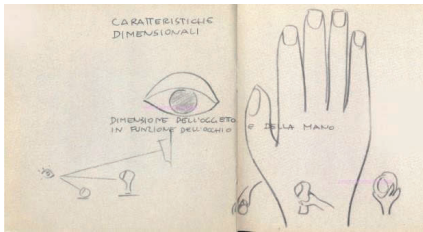 CARATTERISTICHE
DIMENSIONALI
DIMENSIONE DELL'OGGETTO
IN FUNZIONE DELL'OCCHIO E DELLA MANO